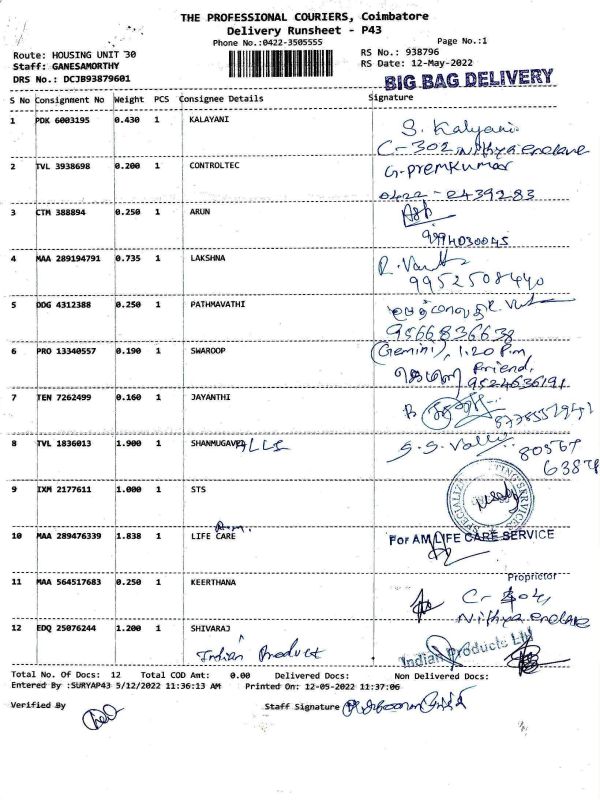 THE PROFESSIONAL COURIERS, Coimbatore
Delivery Runsheet - P43
Phone No.:0422-3505555
Page No.:1
Route: HOUSING UNIT 30
RS No.: 938796
Staff: GANESAMORTHY
RS Date: 12-May-2022
DRS No.: DCJB93879601
BIG BAG DELIVERY
S No Consignment No Weight PCS Consignee Details Signature
1 PDK 6003195 0.430 1 KALAYANI
S. Kalyani
C-302 Nithya enclave
2 TVL 3938698 0.200 1 CONTROLTEC
G. Premkumar
0422-2439283
3 CTM 388894 0.250 1 ARUN
9994030045
4 MAA 289194791 0.735 1 LAKSHNA
9952508440
5 DDG 4312388 0.250 1 PATHMAVATHI
9566836638
6 PRO 13340557 0.190 1 SWAROOP
(Gemini), 1.20 P.m,
friend,
9524636191
7 TEN 7262499 0.160 1 JAYANTHI
8 TVL 1836013 1.900 1 SHANMUGAVALLI
S.S. Valli
80567
63874
9 IXM 2177611 1.000 1 STS
10 MAA 289476339 1.838 1 A.m. LIFE CARE
For AM LIFE CARE SERVICE
Proprietor
11 MAA 564517683 0.250 1 KEERTHANA
Nithya enclave
12 EDQ 25076244 1.200 1 SHIVARAJ
Indian Product
Indian Products Ltd
Total No. Of Docs: 12 Total COD Amt: 0.00 Delivered Docs: Non Delivered Docs:
Entered By :SURYAP43 5/12/2022 11:36:13 AM Printed On: 12-05-2022 11:37:06
Verified By
Staff Signature